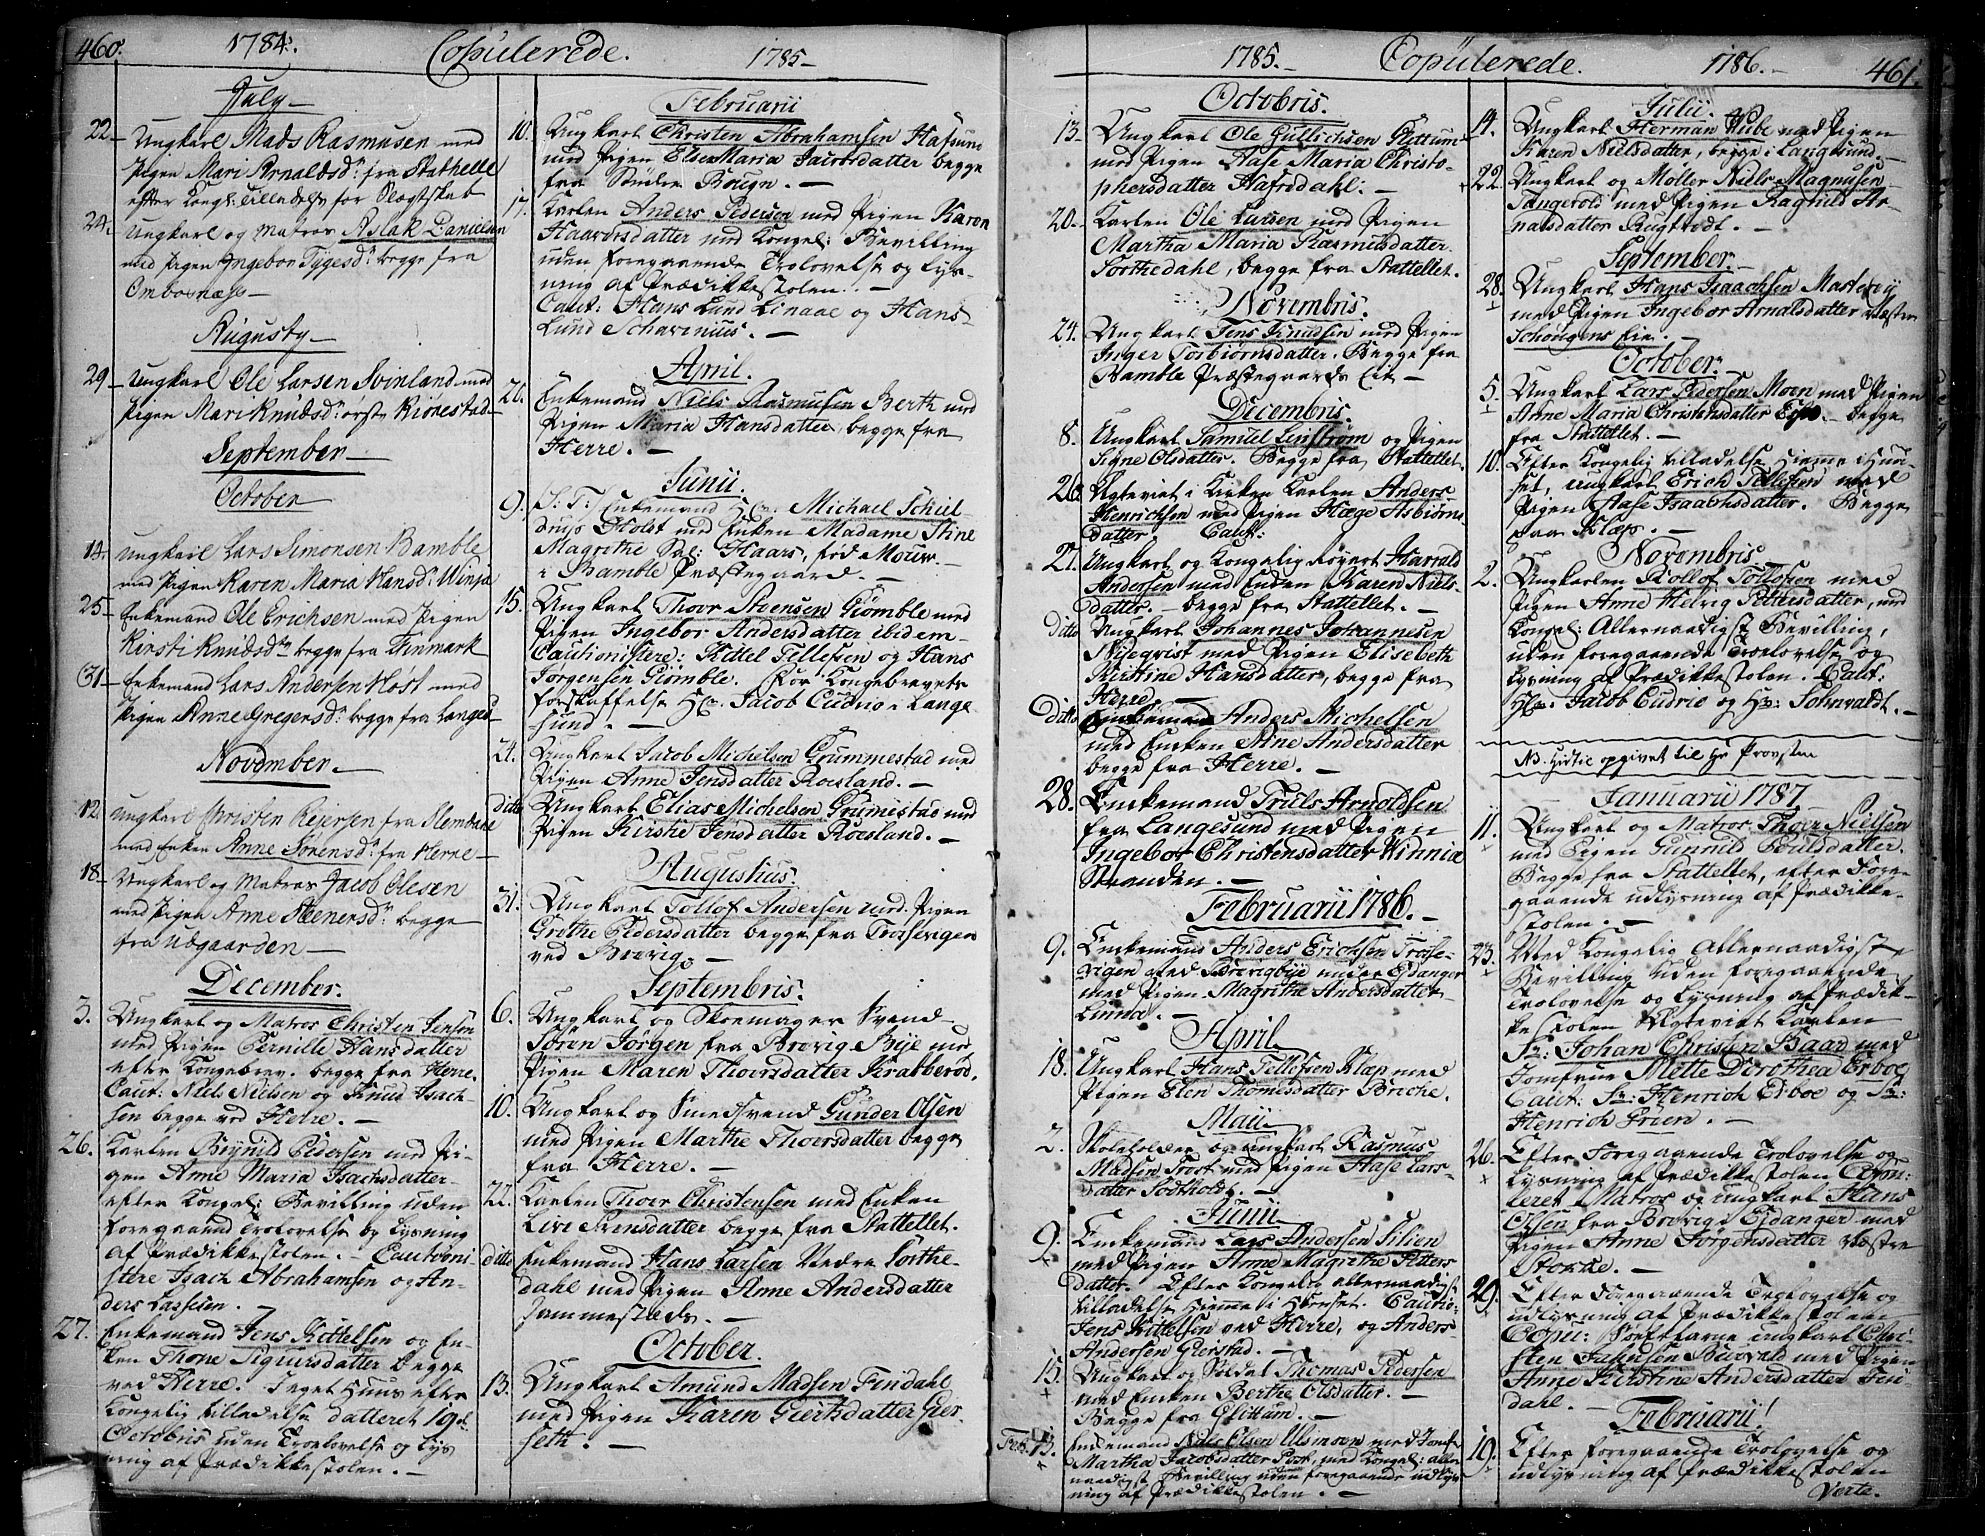 460. 1784. Copulerede. 1785.
July
22. Ungkarl Mads Rasmusen med
Pigen Mari Arnaldsd. fra Stathelle
efter Kongl: Tilladelse for Slægtskab
24. Ungkarl og Matros Aslak Danielsen
med Pigen Ingebor Tygesd. begge fra
Ombosnæss
Augusty
29. Ungkarl Ole Larsen Svinland med
Pigen Mari Knudsd. Kiønestad
September
October
14. Ungkarl Lars Simonsen Bamble
med Pigen Karen Maria Hansd. Vinje
25. Enkemand Ole Erichsen med Pigen
Kirsti Knudsd. begge fra Finmark
31. Enkemand Lars Andersen Høst med
Pigen Anne Gregersd. begge fra Langes.
November
12. Ungkarl Christen Rejersen fra
med Enken Anne Sørensd. fra Herre
18. Ungkarl og Matros Jacob Olesen
med Pigen Anne Steenersd. begge
fra Udgaarden
December.
3. Ungkarl og Matros Christen Jenson
med Pigen Pernille Hansdatter
efter Kongebrev. begge fra Herre.
Caut: Niels Nielsen og Knud Isach-
sen begge ved Herre.
26. Karlen Brynild Pedersen med Pi-
gen Anne Maria Isachsdatter
efter Kongel: Bevilling uden
foregaaend Trolovelse og Lysning
af Prædikkestolen. Cautioni-
stere Isach Abrahamsen og An-
ders Lassesen.
27. Enkemand Jens Kittelsen og En-
ken Thone Sigursdatter begge
ved Herre. I eget Huus efter
Kongelig tilladelse datteret 19de
Octobris uden Trolovelse og Lys
ning af Prædikkestolen.
Februarii
10. Ungkarl Christen Abrahamsen Hafsund
med Pigen Else Maria Jacobsdatter begge
fra Søndre Bougn.
17. Karlen Anders Pederson med Pigen Karen
Haavorsdatter med Kongel: Bevilling
uden foregaaende Trolovelse og Lys-
ning af Prædikkestolen.
Caut: Hans Lund Linaae og Hans
Lund Schavenius.
April.
20. Enkemand Niels Rasmusen Berth med
Pigen Maria Hansdatter, begge fra
Herre.
Junii.
9. (S. T.) Enkemand Hr. Michael Schiel-
drup Holst med Enken Madame Stine
Magrethe Sal: Haars, fød Mouw.
i Bamble Præstegaard.
15. Ungkarl Thor Svensen Giømble med
Pigen Ingebor Andersdatter ibidem
Cautionistere: Kittel Tellefsen og Hans
Jørgensen Giømble. For Kongebrevets
forskaffelse Hr. Jacob Cudrio i Lange
sund.
24. Ungkarl Jacob Michelsen Grummestad med
Pigen Anne Jensdatter Roesland.
ditto Ungkarl Elias Michelsen Grumestad med
Pigen Kirstie Jensdatter Roesland.
Augusthus.
31. Ungkarl Tollof Andersen med Pigen
Grethe Pedersdatter begge fra Trosvigen
ved Brevig.
Septembris.
6. Ungkarl og Skoemager Svend
Søren Jørgen fra Brevig Bye med
Pigen Maren Thorsdatter Krabberød.
10. Ungkarl og Smedsvend Gunder Olsen
med Pigen Marthe Thorsdatter begge
fra Herre.
22. Karlen Thor Christensen med Enken
Live Svensdatter begge fra Stattellet.
ditto Enkemand Hans Larsen Nedre Torthe-
dahl med Pigen Anne Andersdatter
sammestæds.
October.
13. Ungkarl Amund Madsen Findahl
med Pigen Karen Giertsdatter Gier-
seth.
1785. Copulerede. 1786. 461.
Octobris.
13. Ungkarl Ole Gullichsen Flittum
med Pigen Aase Maria Christo-
phersdatter Hafsdahl.
20. Karlen Ole Larsen med Pigen
Martha Maria Rasmusdatter
Torthedahl, begge fra Stattellet.
Novembris.
24. Ungkarl Jens Knudsen med Pigen
Inger Torbiørnsdatter. Begge fra
Bamble Præstegaards Eie
Decembris.
8. Ungkarl Samuel Linstrøm og Pigen
Signe Olsdatter. Begge fra Stattellet.
26. Agteviet i Kirken Karlen Anders
Henrichsen med Pigen Hæge Asbiørns
datter. Caut:
27. Ungkarl og Kongelig Rojert Harrald
Andersen med Enken Karen Niels-
datter. begge fra Stattellet.
ditto Ungkarl Johannes Johannesen
Niqvist med Pigen Elisebeth
Kirstine Hansdatter, begge fra
Herre
ditto Enkemand Anders Michelsen
med Enken Stine Andersdatter
begge fra Herre.
28. Enkemand Truls Arnoldsen
fra Langesund med Pigen
Ingebor Christensdatter Vinnie
Stranden.
Februarii 1786.
9. Enkemand Anders Erichsen Trose-
vigen ved Brevigbye under Eidanger
med Pigen Magrethe Andersdatter
Linnæ.
April
18. Ungkarl Hans Tellefsen Klap med
Pigen Elen Thomesdatter Briche.
Maii
2. Skoleholder og ungkarl Rasmus
Madsen Trost med Pigen Aase Lars-
datter Todthold.
Junii
9. Enkemand Lars Andersen Silien
med Pigen Anne Magrethe Petters
datter. Efter Kongelig allernaadigst
tilladelse Hiemme i Huuset. Cautio:
Jens Kittelsen ved Herre, og Anders
Andersen Gierstad.
15. Ungkarl og Soldat Thomas Pedersen
med Enken Berthe Olsdatter.
Begge fra Flittum.
Enkemand Niels Olsen Ulsmoen med Jomf.
Martha Jacobsdatter med Kongel: aller
naadigst Bevilling uden foregaaende udlys
ning af Prædikkestolen.
Julii
14. Ungkarl Herman Wibe med Pigen
Karen Nielsdatter, begge i Langesund.
22. Ungkarl og Møller Niels Magnusen
Tangevold med Pigen Ragnild Ar-
nalsdatter Rugtvedt.
September.
28. Ungkarl Hans Isaachsen Mastereij
med Pigen Ingebor Arnalsdatter Næstre
Schougens Eie.
October.
5. Ungkarl Lars Pedersen Moen med Pigen
Anne Maria Christensdatter begge
fra Stattellet.
10. Efter Kongelig tilladelse Hieme i Huu-
set, ungkarl Erich Tellefsen med
Pigen Aase Isaachsdatter. Begge
paa Klap.
Novembris
2. Ungkarlen Rollof Tollofsen med
Pigen Anne Helvig Pettersdatter, med
Kongel: Allernaadigst Bevilling,
uden foregaaende Trolovelse og
Lysning af Prædikkestolen. Caut:
Hr. Jacob Cudrio og Hr: Sohnvaldt.
NB. Hidtil opgivet til Hr Provsten
Januarii 1787
11. Ungkarl og Matros Thor Nielsen
med Pigen Gunnild Poulsdatter.
Begge fra Stattellet, efter Fore-
gaaende udlysning af Prædikke-
stolen.
23. Med Kongelig Allernaadigste
Bevilling uden foregaaende
Trolovelse og Lysning af Prædik-
kestolen Agteviet Karlen
Sr: Johan Christen Baar med
Jomfrue Mette Dorothea Erboe
Caut: Sr: Henrich Erboe og Sr:
Henrich Prien.
26. Efter Foregaaende Trolovelse og
Lysning af Prædikkestolen Copu-
leret Matros og ungkarl Hans
Olsen fra Brevig i Ejdanger med
Pigen Anne Jørgensdatter Næstre
Stokke.
29. Efter Foregaaende Trolovelse og
udlysning af Prædikkestolen
Copu: Søefarne ungkarl Chri-
sten Jahnsen Buvald med Pigen
Anne Kirstine Andersdatter Fin-
dahl.
Februarii!
19. Efter foregaaende Trolovelse og
udlysning af Prædikkestolen
Verte.